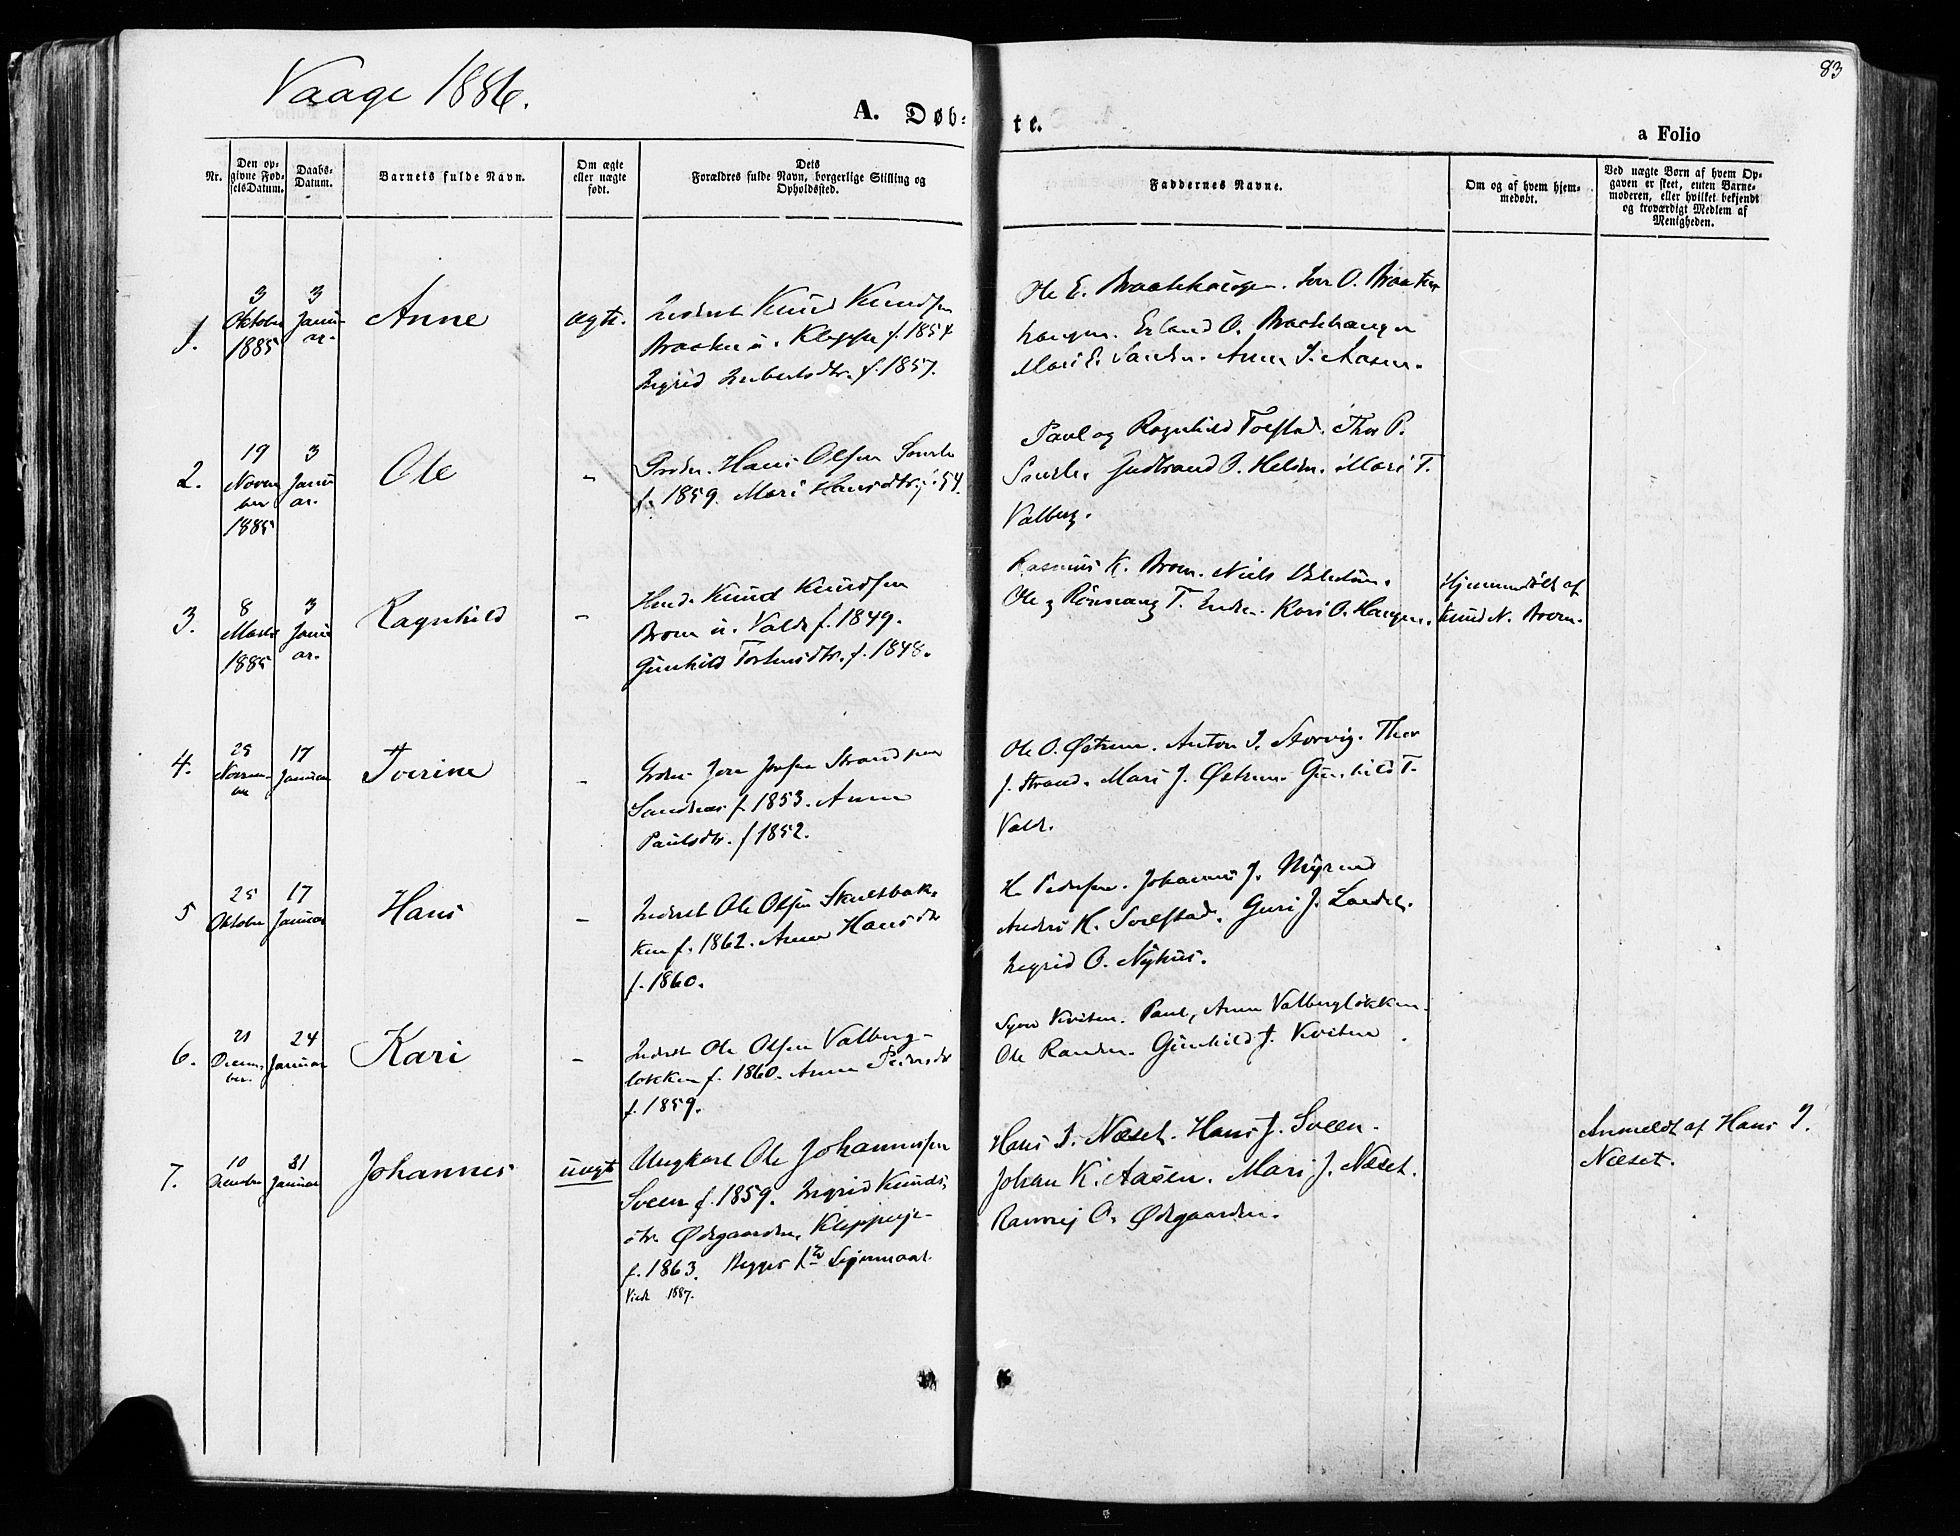 83
Vaage 1886.
A. Døb-
te.
a Folio
Nr.
Den op-
givne Fød-
selsDatum.
Daabs-
Datum.
Barnets fulde Navn.
Om ægte
eller uægte
født.
Dets
Forældres fulde Navn, borgerlige Stilling og
Opholdssted.
Faddernes Navne.
Om og af hvem hjem-
medøbt.
Ved uægte Børn af hvem Op-
gaven er skeet, enten Barne-
moderen, eller hvilket bekjendt
og troværdigt Medlem af
Menigheden.
1.
3
Oktober
1885
3
Janu-
ar.
Anne
ægte.
Inderst Knud Knudsen
Braaten u. Kleppe f. 1854
Ingrid Embertsdtr. f. 1857.
Ole E. Braatehaugen. Iver O. Braate-
haugen. Erland O. Braatehaugen
Mari E. Sanden. Anne I. Aasen.
2.
19
Novem
ber
1885
3
Janu
ar.
Ole
-
Hans Olsen
f. 1859. Mari Hansdtr. f. 54.
Paul og Ragnhild Tolstad. Thor P.
Gudbrand O. Mari T.
Valberg.
3.
8
Marts
1885
3
Janu
ar.
Ragnhild
-
Knud Knudsen
Brovn u. Valde f. 1849.
Gunhild Torsteinsdtr. f. 1848.
Rasmus K. Brovn. Niels
Ole og Rønnaug T. Kari O. Haugen.
Hjemmedøbt af
Knud N. Brovn.
4.
29
Novem-
ber
17
Januar
Iverine
-
Strand
Sandnes f. 1853. Anne
Paulsdtr. f 1852.
Ole O. Anton I. Storvig. Thor
J. Strand. Mari J. Gunhild T.
Valde.
5
25
Oktober
17
Januar
Hans
-
Inderst Ole Olsen Skultbak-
ken f. 1862. Anne Hansdtr
f. 1860.
H. Pedersen. Johannes J. Myrend
Anders K. Guri J.
Ingrid O. Nyhus.
6.
21
Decem-
ber.
24
Januar
Kari
-
Inderst Ole Olsen Valberg-
løkken f. 1860. Anne Pedersdtr
f. 1859.
Syver Kviten. Paul, Anne Valbergløkken.
Ole Randen. Gunhild J. Kviten.
7.
10
December
31
Januar
Johannes
uægte
Ungkarl Ole Johannessen
Sveen f. 1859. Ingrid Knuds-
dtr. Ødegaarden, Kleppeeje
f. 1863. Begges 1ste Leiermaal.
Viede 1887.
Hans I. Næset. Hans J. Sveen.
Johan K. Aasen. Mari J. Næset.
Ranvej O. Ødegaarden.
Anmeldt af Hans I.
Næset.